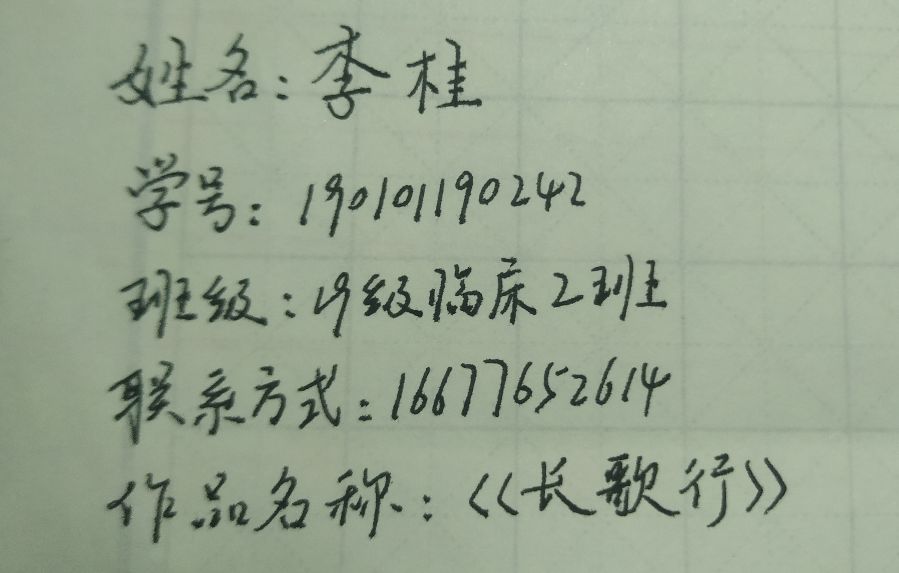 姓名：李桂
学号：190101190242
班级：19级临床2班
联系方式：16677652614
作品名称：《长歌行》